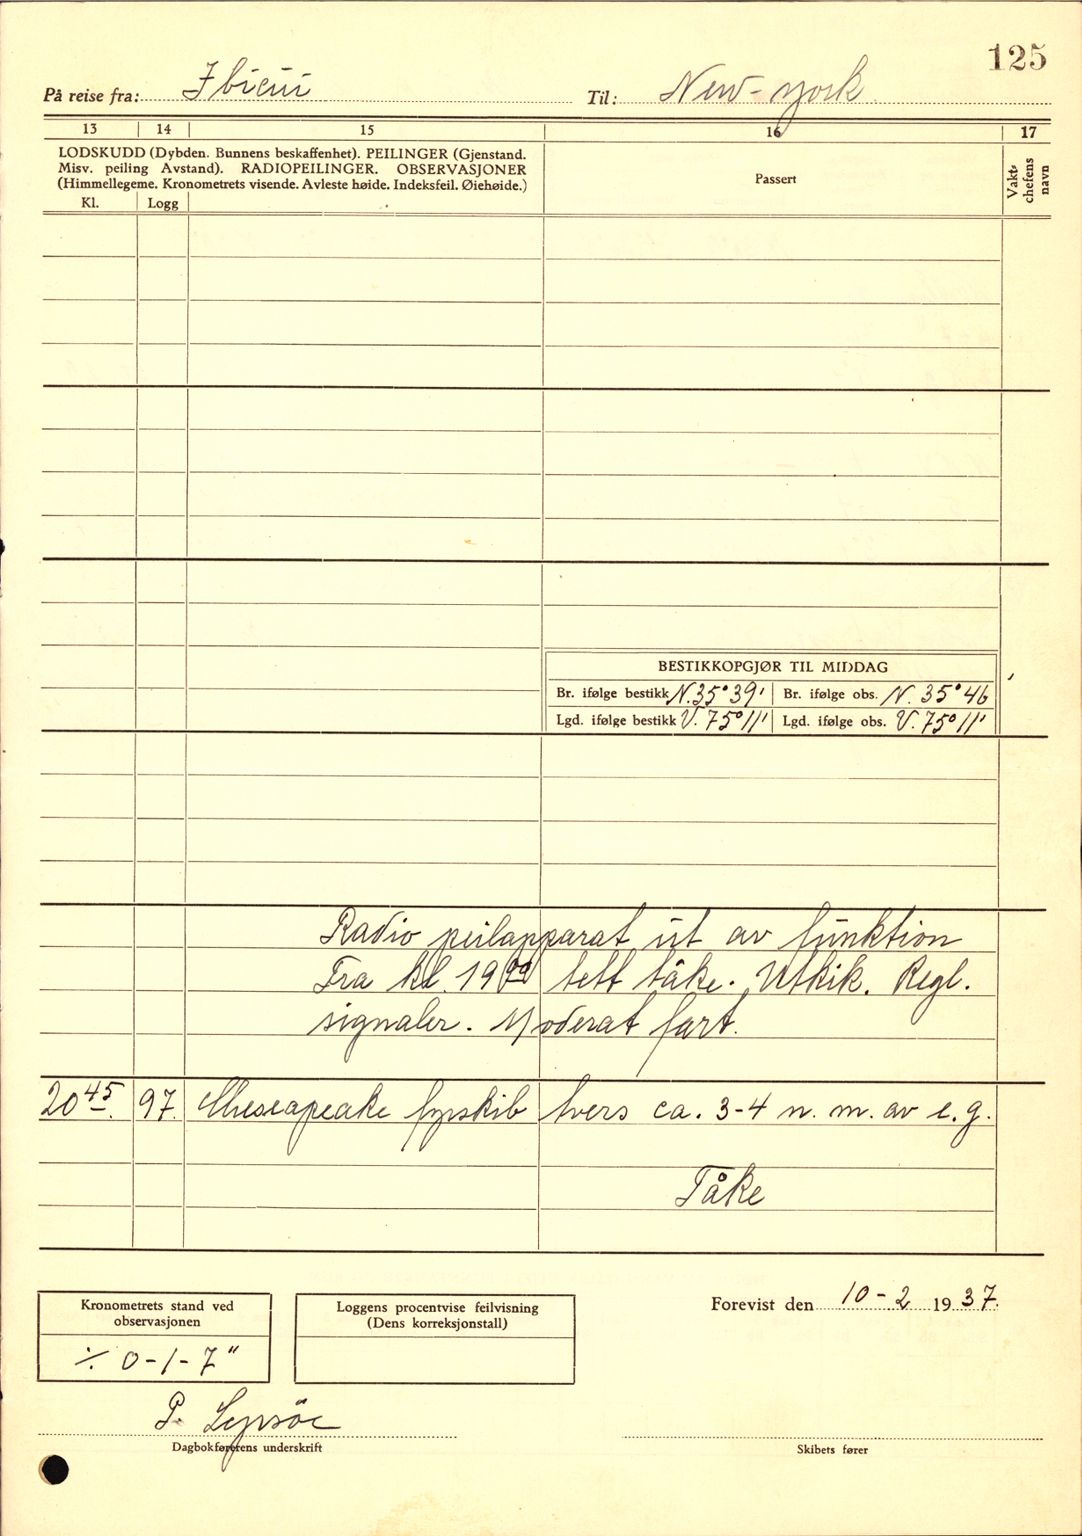 125
På reise fra: Ibicui Til: New-york
13 14 15 16 17
LODSKUDD (Dybden. Bunnens beskaffenhet). PEILINGER (Gjenstand.
Misv. peiling Avstand). RADIOPEILINGER. OBSERVASJONER
(Himmellegeme. Kronometrets visende. Avleste høide. Indeksfeil. Øiehøide.)
Passert
Vakt-
chefens
navn
Kl. Logg
BESTIKKOPGJØR TIL MIDDAG
Br. ifølge bestikk N. 35° 39' Br. ifølge obs. N. 35° 46
Lgd. ifølge bestikk V. 75° 11' Lgd. ifølge obs. V. 75° 11'
Radio peilapparat ut av funktion
Fra kl. 19 00 tett tåke. Utkik. Regl.
signaler. Moderat fart.
20 45 97. Cheseapeake fyrskib tvers ca. 3-4 n. m. av e. g.
Tåke
Kronometrets stand ved
observasjonen
÷ 0-1-7"
Loggens procentvise feilvisning
(Dens korreksjonstall)
Forevist den 10-2 1937.
P. Lyrsöe
Dagbokførerens underskrift
Skibets fører